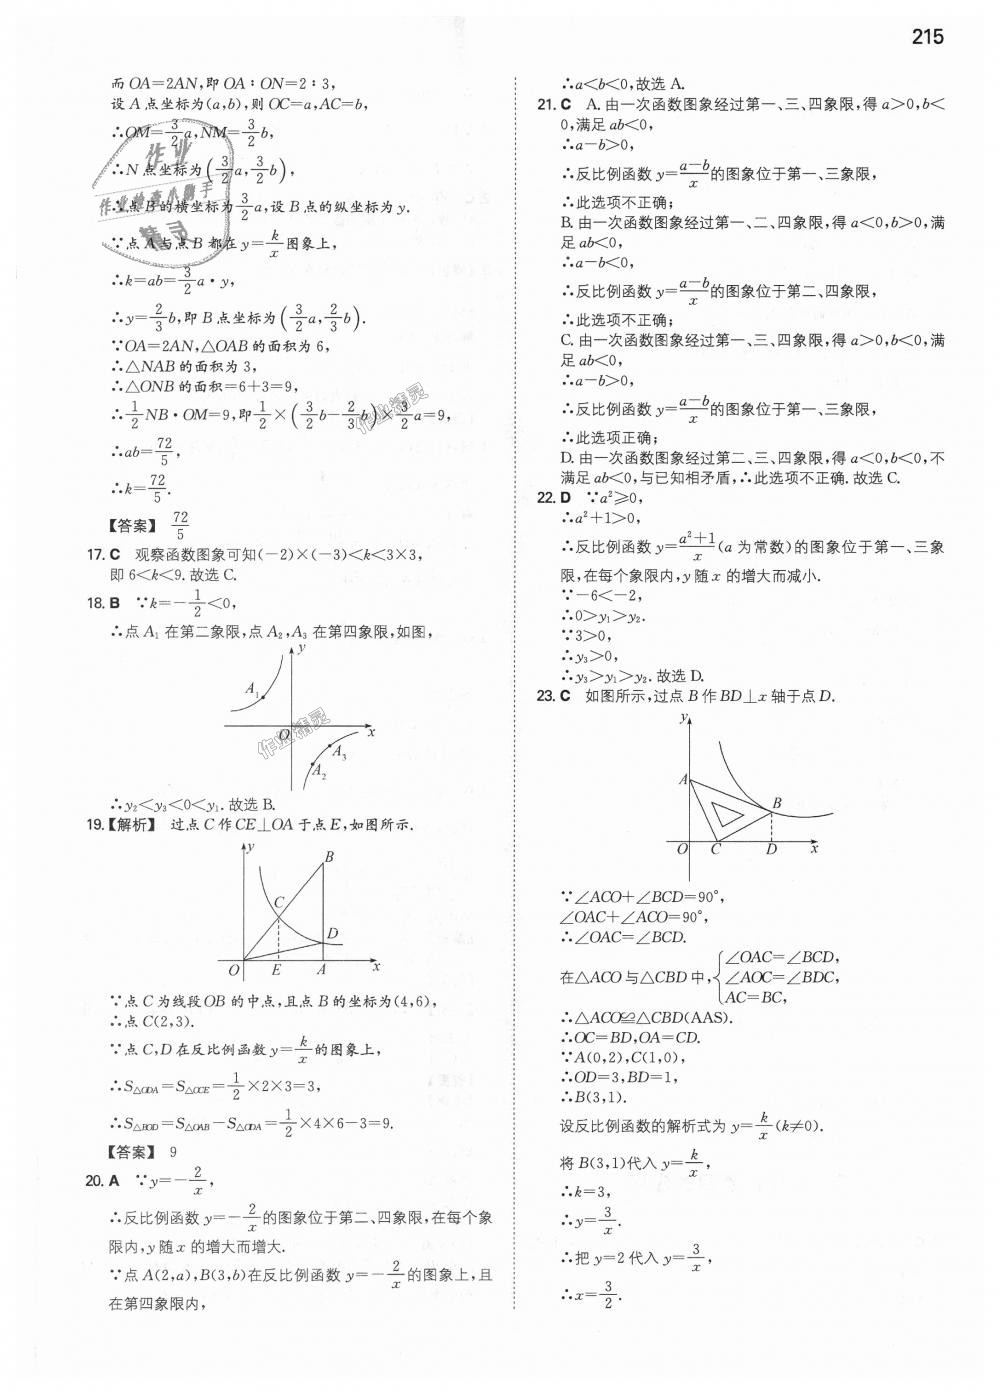 215
而 OA=2AN,即 OA∶ON=2∶3,
设 A 点坐标为(a,b),则 OC=a,AC=b,
∴OM=3/2a,NM=3/2b,
∴N 点坐标为(3/2a,3/2b),
∴点 B 的横坐标为3/2a,设 B 点的纵坐标为 y.
∵点 A 与点 B 都在 y=k/x图象上,
∴k=ab=3/2a·y,
∴y=2/3b,即 B 点坐标为(3/2a,2/3b).
∵OA=2AN,△OAB 的面积为 6,
∴△NAB 的面积为 3,
∴△ONB 的面积=6+3=9,
∴1/2NB·OM=9,即1/2×(3/2b−2/3b)×3/2a=9,
∴ab=72/5,
∴k=72/5.
【答案】 72/5
17. C 观察函数图象可知(−2)×(−3)<k<3×3,
即 6<k<9. 故选 C.
18. B ∵k=−1/2<0,
∴点 A₁ 在第二象限,点 A₂,A₃ 在第四象限,如图,
y
A₁
O
x
A₃
A₂
∴y₂<y₃<0<y₁. 故选 B.
19.【解析】 过点 C 作 CE⊥OA 于点 E,如图所示.
y
B
C
D
O
E
A
x
∵点 C 为线段OB 的中点,且点 B 的坐标为(4,6),
∴点 C(2,3).
∵点 C,D 在反比例函数 y=k/x的图象上,
∴S△ODA=S△OCE=1/2×2×3=3,
∴S△BOD=S△OAB−S△ODA=1/2×4×6−3=9.
【答案】 9
20. A ∵y=−2/x,
∴反比例函数 y=−2/x的图象位于第二、四象限,在每个象
限内,y 随 x 的增大而增大.
∵点 A(2,a),B(3,b)在反比例函数 y=−2/x的图象上,且
在第四象限内,
∴a<b<0,故选 A.
21. C A. 由一次函数图象经过第一、三、四象限,得 a>0,b<
0,满足 ab<0,
∴a−b>0,
∴反比例函数 y=a−b/x的图象位于第一、三象限,
∴此选项不正确;
B. 由一次函数图象经过第一、二、四象限,得 a<0,b>0,满
足 ab<0,
∴a−b<0,
∴反比例函数 y=a−b/x的图象位于第二、四象限,
∴此选项不正确;
C. 由一次函数图象经过第一、三、四象限,得 a>0,b<0,满
足 ab<0,
∴a−b>0,
∴反比例函数 y=a−b/x的图象位于第一、三象限,
∴此选项正确;
D. 由一次函数图象经过第二、三、四象限,得 a<0,b<0,不
满足 ab<0,与已知相矛盾,∴此选项不正确. 故选 C.
22. D ∵a²≥0,
∴a²+1>0,
∴反比例函数 y=a²+1/x(a 为常数)的图象位于第一、三象
限,在每个象限内,y 随 x 的增大而减小.
∵−6<−2,
∴0>y₁>y₂.
∵3>0,
∴y₃>0,
∴y₃>y₁>y₂. 故选 D.
23. C 如图所示,过点 B 作 BD⊥x 轴于点 D.
y
A
B
O
C
D
x
∵∠ACO+∠BCD=90°,
∠OAC+∠ACO=90°,
∴∠OAC=∠BCD.
在△ACO 与△CBD 中,{∠OAC=∠BCD,
∠AOC=∠BDC,
AC=BC,
∴△ACO≌△CBD(AAS).
∴OC=BD,OA=CD.
∵A(0,2),C(1,0),
∴OD=3,BD=1,
∴B(3,1).
设反比例函数的解析式为 y=k/x(k≠0).
将 B(3,1)代入 y=k/x,
∴k=3,
∴y=3/x.
∴把 y=2 代入 y=3/x,
∴x=3/2.
作业
作业检查小助手
精灵
作业精灵
作业精灵